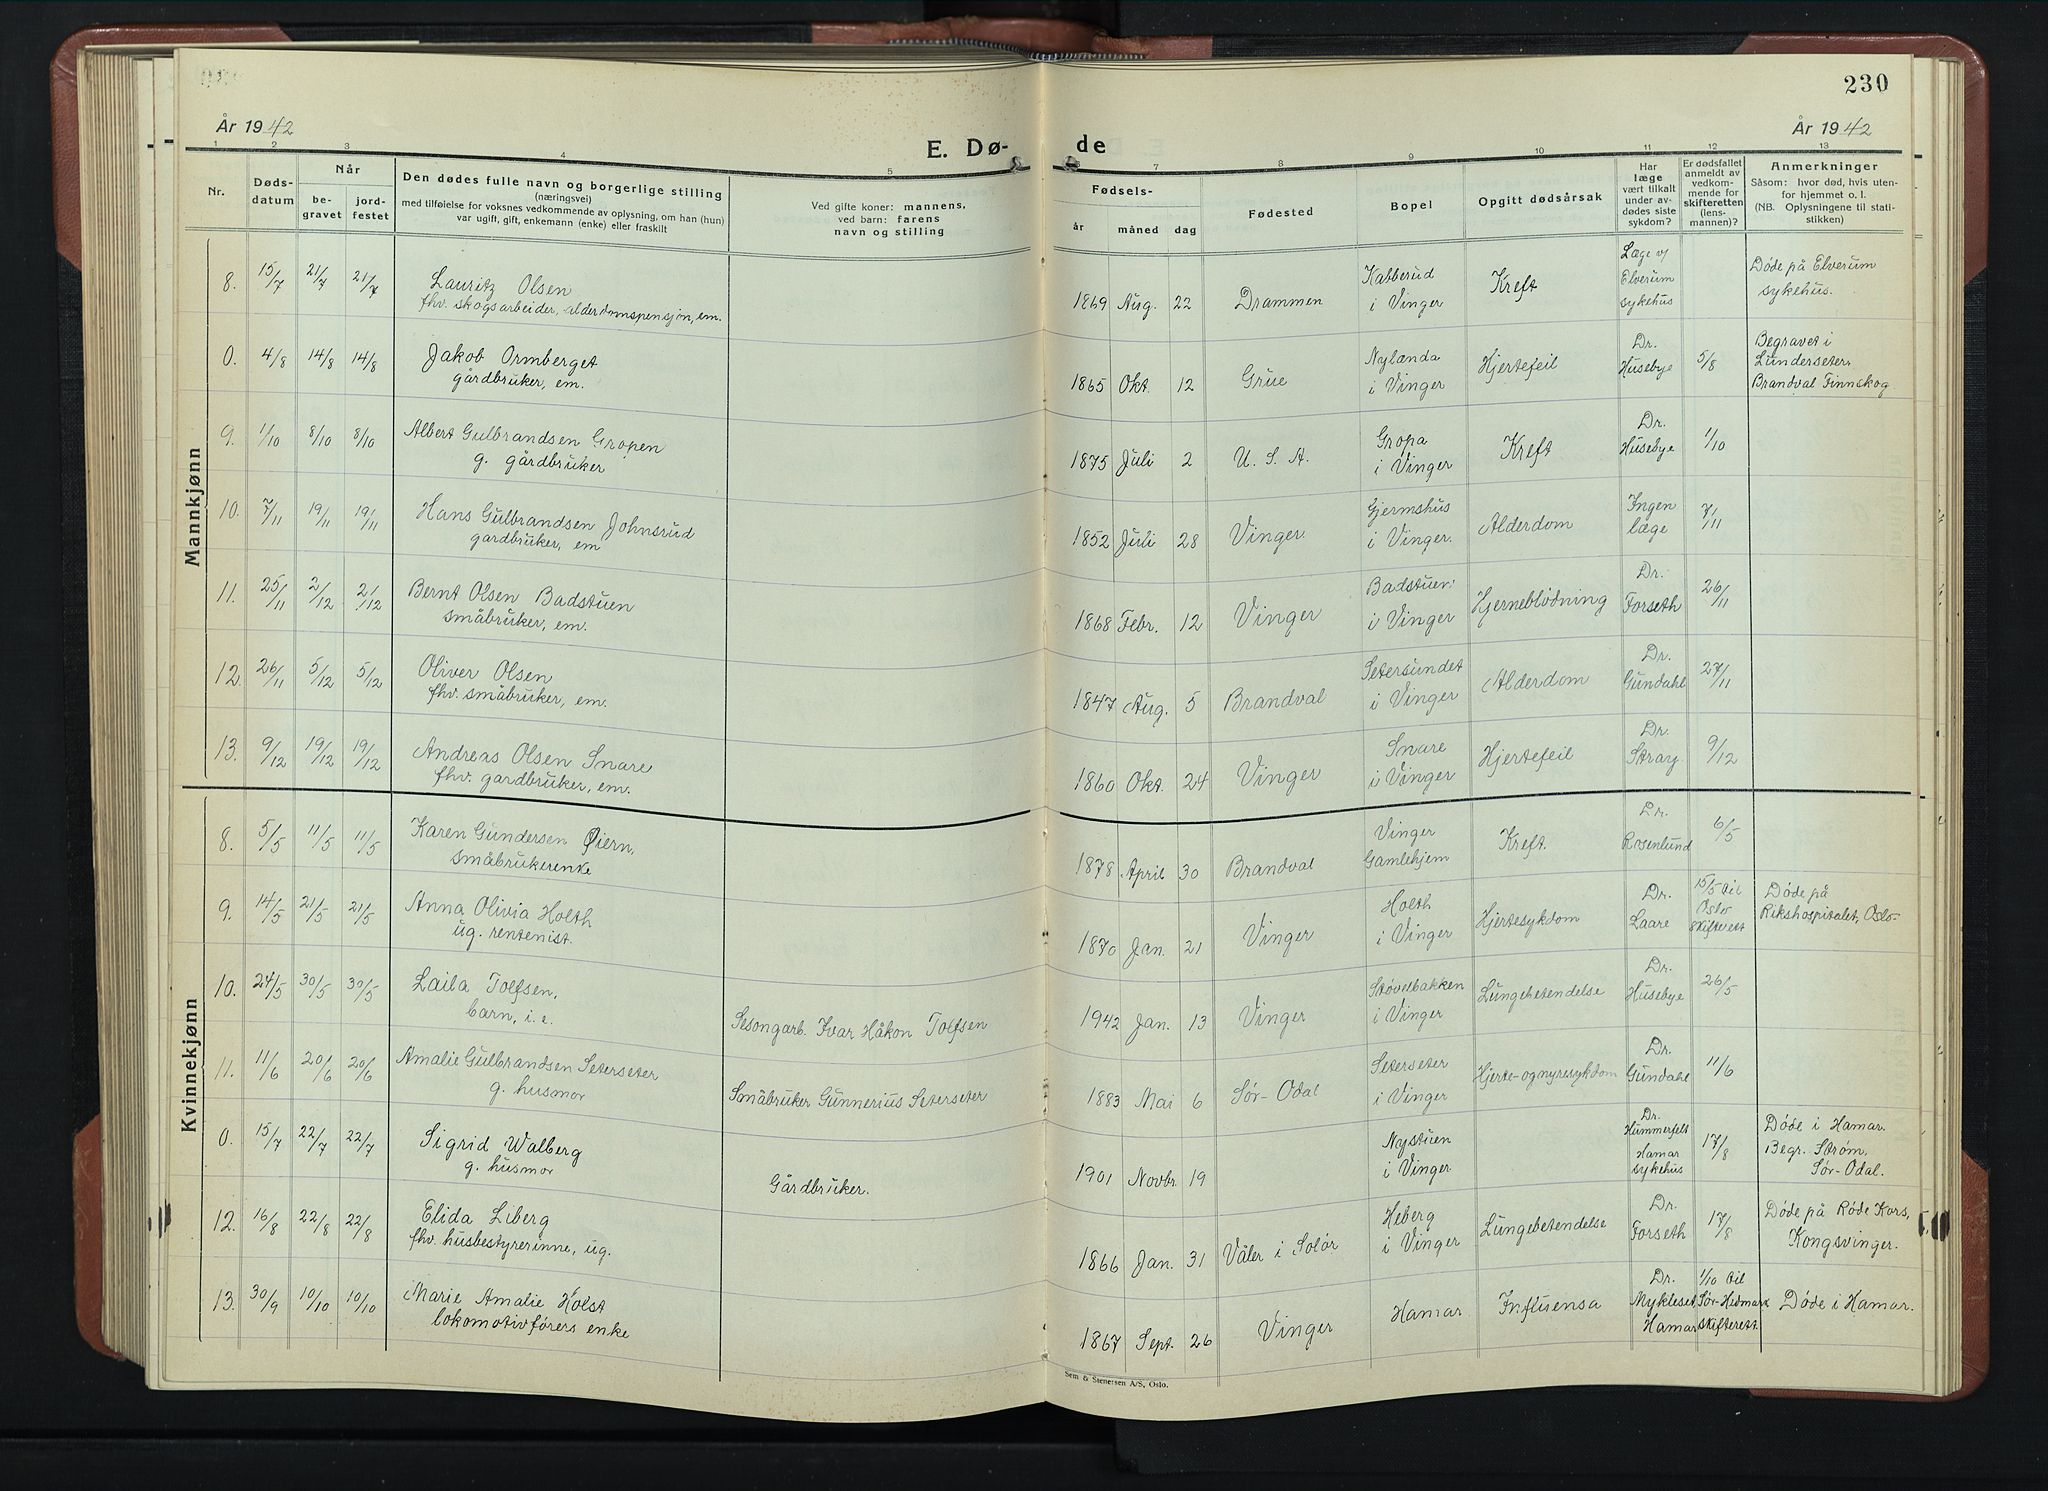 230
År 1942
År 1942
E. Dø-
de
1 2 3 4 5 6 7 8 9 10 11 12 13
Nr.
Døds-
datum
Når
be-
gravet
jord-
festet
Den dødes fulle navn og borgerlige stilling
(næringsvei)
med tilføielse for voksnes vedkommende av oplysning, om han (hun)
var ugift, gift, enkemann (enke) eller fraskilt
Ved gifte koner: mannens,
ved barn: farens
navn og stilling
Fødsels-
år måned dag
Fødested
Bopel
Opgitt dødsårsak
Har
læge
vært tilkalt
under av-
dødes siste
sykdom?
Er dødsfallet
anmeldt av
vedkom-
mende for
skifteretten
(lens-
mannen)?
Anmerkninger
Såsom: hvor død, hvis uten-
for hjemmet o. l.
(NB. Oplysningene til stati-
stikken)
Mannkjønn
8. 15/7 21/7 21/7 Lauritz Olsen
fhv. skogsarbeider, alderdomspensjon, em.
1869 Aug. 22 Drammen
Kabberud
i Vinger
Kreft
Læge v/
Elverum
sykehus
Døde på Elverum
sykehus.
0. 4/8 14/8 14/8 Jakob Ormberget
gårdbruker, em.
1865 Okt. 12 Grue
Nylænda
i Vinger
Hjertefeil
Dr.
Husebye
5/8
Begravet i
Lunderseter,
Brandval Finnskog
9. 1/10 8/10 8/10 Albert Gulbrandsen Gropen
g. gårdbruker
1875 Juli 2 U. S. A.
Gropa
i Vinger
Kreft
Dr.
Husebye
1/10
10. 7/11 19/11 19/11 Hans Gulbrandsen Johnsrud
gardbruker, em
1852 Juli 28 Vinger.
Gjermshus
i Vinger.
Alderdom
Ingen
læge
7/11
11. 25/11 2/12 2/12 Bernt Olsen Badstuen
småbruker, em.
1868 Febr. 12 Vinger
Badstuen
i Vinger
Hjerneblödning
Dr.
Forseth
26/11
12. 26/11 5/12 5/12 Oliver Olsen
fhv. småbruker, em.
1847 Aug. 5 Brandval
Setersundet
i Vinger
Alderdom
Dr.
Gundahl
27/11
13. 9/12 19/12 19/12 Andreas Olsen Snare
fhv. gardbruker, em.
1860 Okt. 24 Vinger
Snare
i Vinger
Hjertefeil
Dr.
Stray.
9/12
Kvinnekjønn
8. 5/5 11/5 11/5 Karen Gundersen Øiern,
småbrukerenke
1878 April 30 Brandval
Vinger
Gamlehjem
Kreft.
Dr.
Rosenlund
6/5
9. 14/5 21/5 21/5 Anna Olivia Holth
ug. rentenist.
1870 Jan. 21 Vinger
Holth
i Vinger
Hjertesykdom
Dr.
Laare
15/5 til
Oslo
skifterett
Døde på
Rikshospitalet, Oslo
10. 24/5 30/5 30/5 Laila Tolfsen,
barn, i. e.
Sesongarb. Ivar Håkon Tolfsen
1942 Jan. 13 Vinger
Støvelbakken
i Vinger
Lungebetendelse
Dr.
Husebye
26/5
11. 11/6 20/6 20/6 Amalie Gulbrandsen Seterseter
g. husmor
Småbruker Gunnerius Seterseter
1883 Mai 6 Sør-Odal
Seterseter
i Vinger
Hjerte- og nyresykdom
Dr.
Gundahl
11/6
0. 15/7 22/7 22/7 Sigrid Walberg
g. husmor
Gårdbruker.
1901 Novbr. 19
Nystuen
i Vinger
Dr.
Hummerfelt
Hamar
sykehus
17/8
Døde i Hamar.
Begr. Strøm,
Sør-Odal.
12. 16/8 22/8 22/8 Elida Liberg
fhv. husbestyrerinne, ug.
1866 Jan. 31 Våler i Solør
Heberg
i Vinger
Lungebetendelse
Dr.
Forseth
17/8
Døde på Røde Kors,
Kongsvinger.
13. 30/9 10/10 10/10 Marie Amalie Holst
lokomotivførers enke
1867 Sept. 26 Vinger
Hamar
Influensa
Dr.
Myklest
Hamar
1/10 til
Sør-Hedmark
skifterett.
Døde i Hamar.
Sem & Stenersen A/S, Oslo.